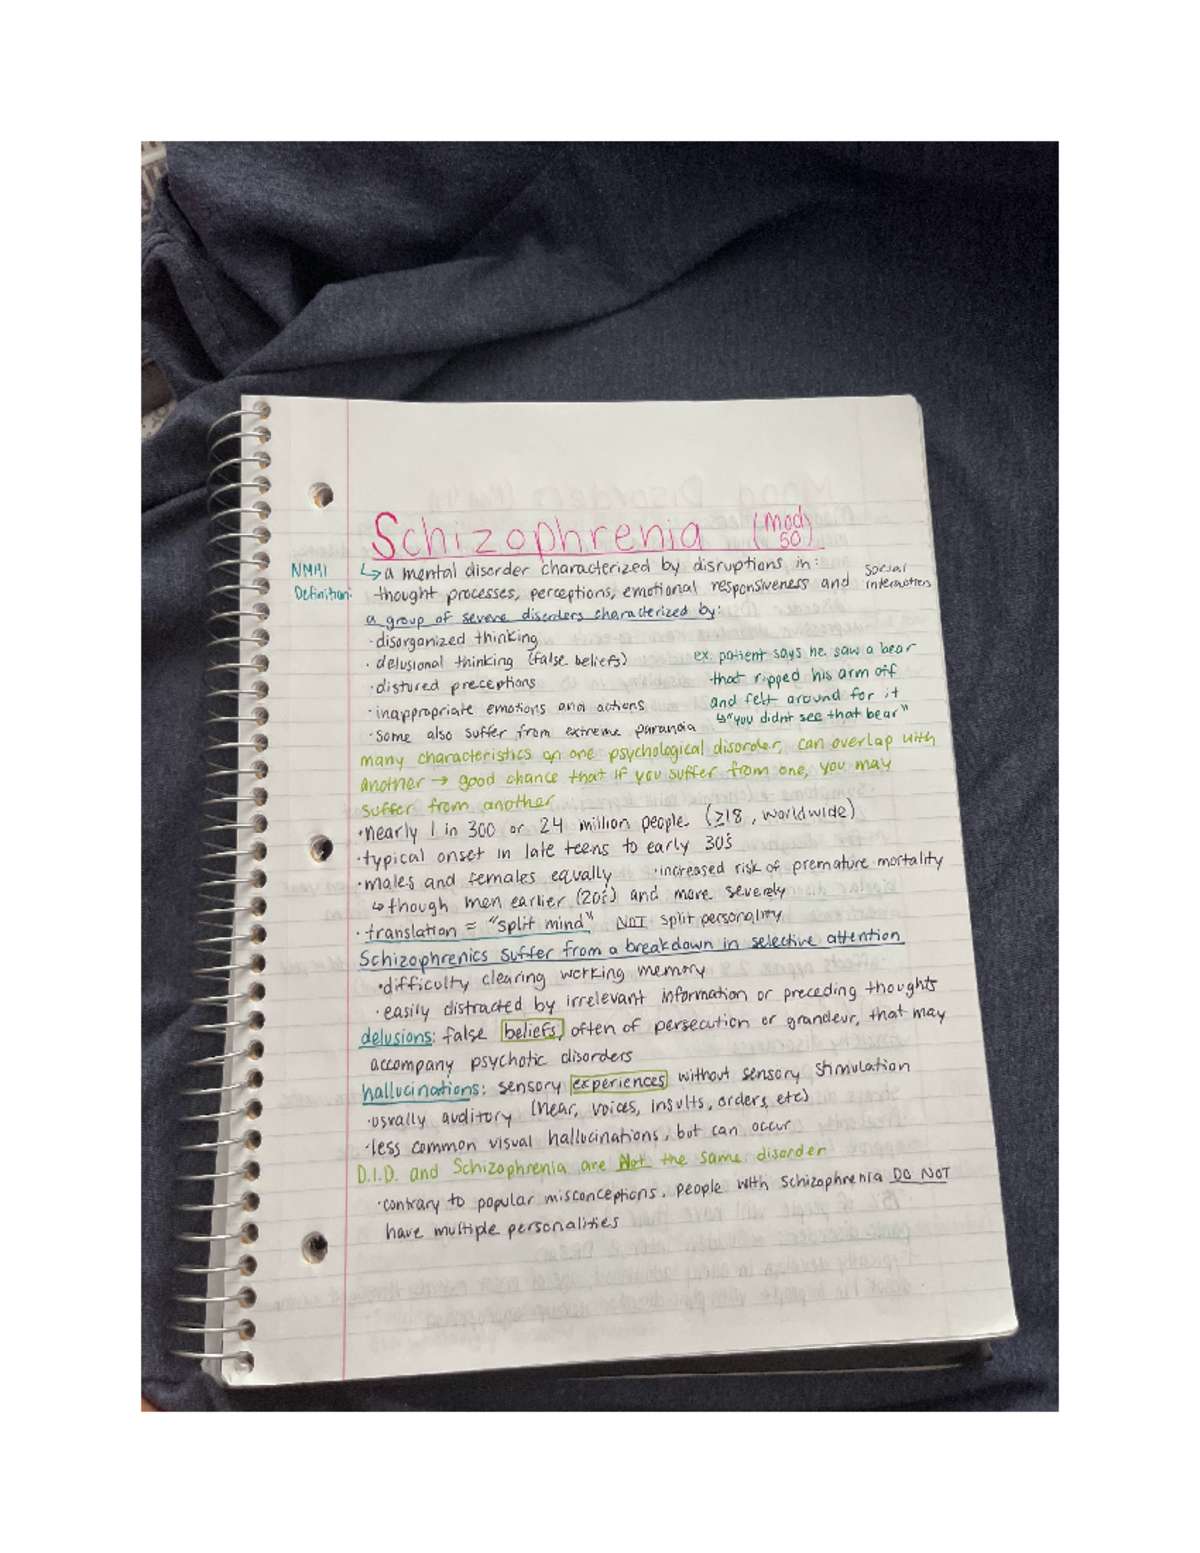 Schizophrenia (Mod 50)
NMHI Definition: ↳ a mental disorder characterized by disruptions in:
thought processes, perceptions, emotional responsiveness and social interaction
a group of severe disorders characterized by:
· disorganized thinking
· delusional thinking (false beliefs)
· distured preceptions
· inappropriate emotions and actions
· some also suffer from extreme paranoia
ex. patient says he saw a bear
that ripped his arm off
and felt around for it
↳ "you didnt see that bear"
many characteristics on one psychological disorder, can overlap with
another → good chance that if you suffer from one, you may
suffer from another
· nearly 1 in 300 or 24 million people (≥18, worldwide)
· typical onset in late teens to early 30's
· males and females equally · increased risk of premature mortality
↳ though men earlier (20's) and more severely
· translation = "split mind" NOT split personality
Schizophrenics suffer from a breakdown in selective attention
· difficulty clearing working memory
· easily distracted by irrelevant information or preceding thoughts
delusions: false beliefs, often of persecution or grandeur, that may
accompany psychotic disorders
hallucinations: sensory experiences without sensory stimulation
· usually auditory (hear, voices, insults, orders, etc)
· less common visual hallucinations, but can occur
D.I.D. and Schizophrenia are Not the same disorder
· contrary to popular misconceptions, people with schizophrenia DO NOT
have multiple personalities